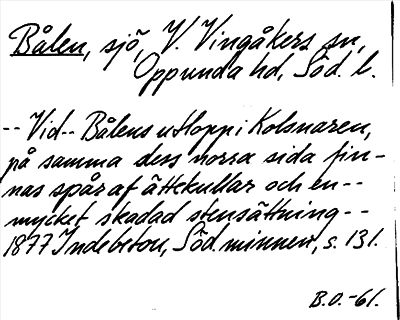 Bålen, sjö, V. Vingåkers sn,
Oppunda hd, Söd. l.
-- Vid -- Bålens utlopp i Kolsnaren,
på samma dess norra sida fin-
nas spår af ättekullar och en --
mycket skadad stensättning --
1877 Indebetou, Söd. minnen, s. 131.
B.O.-61.